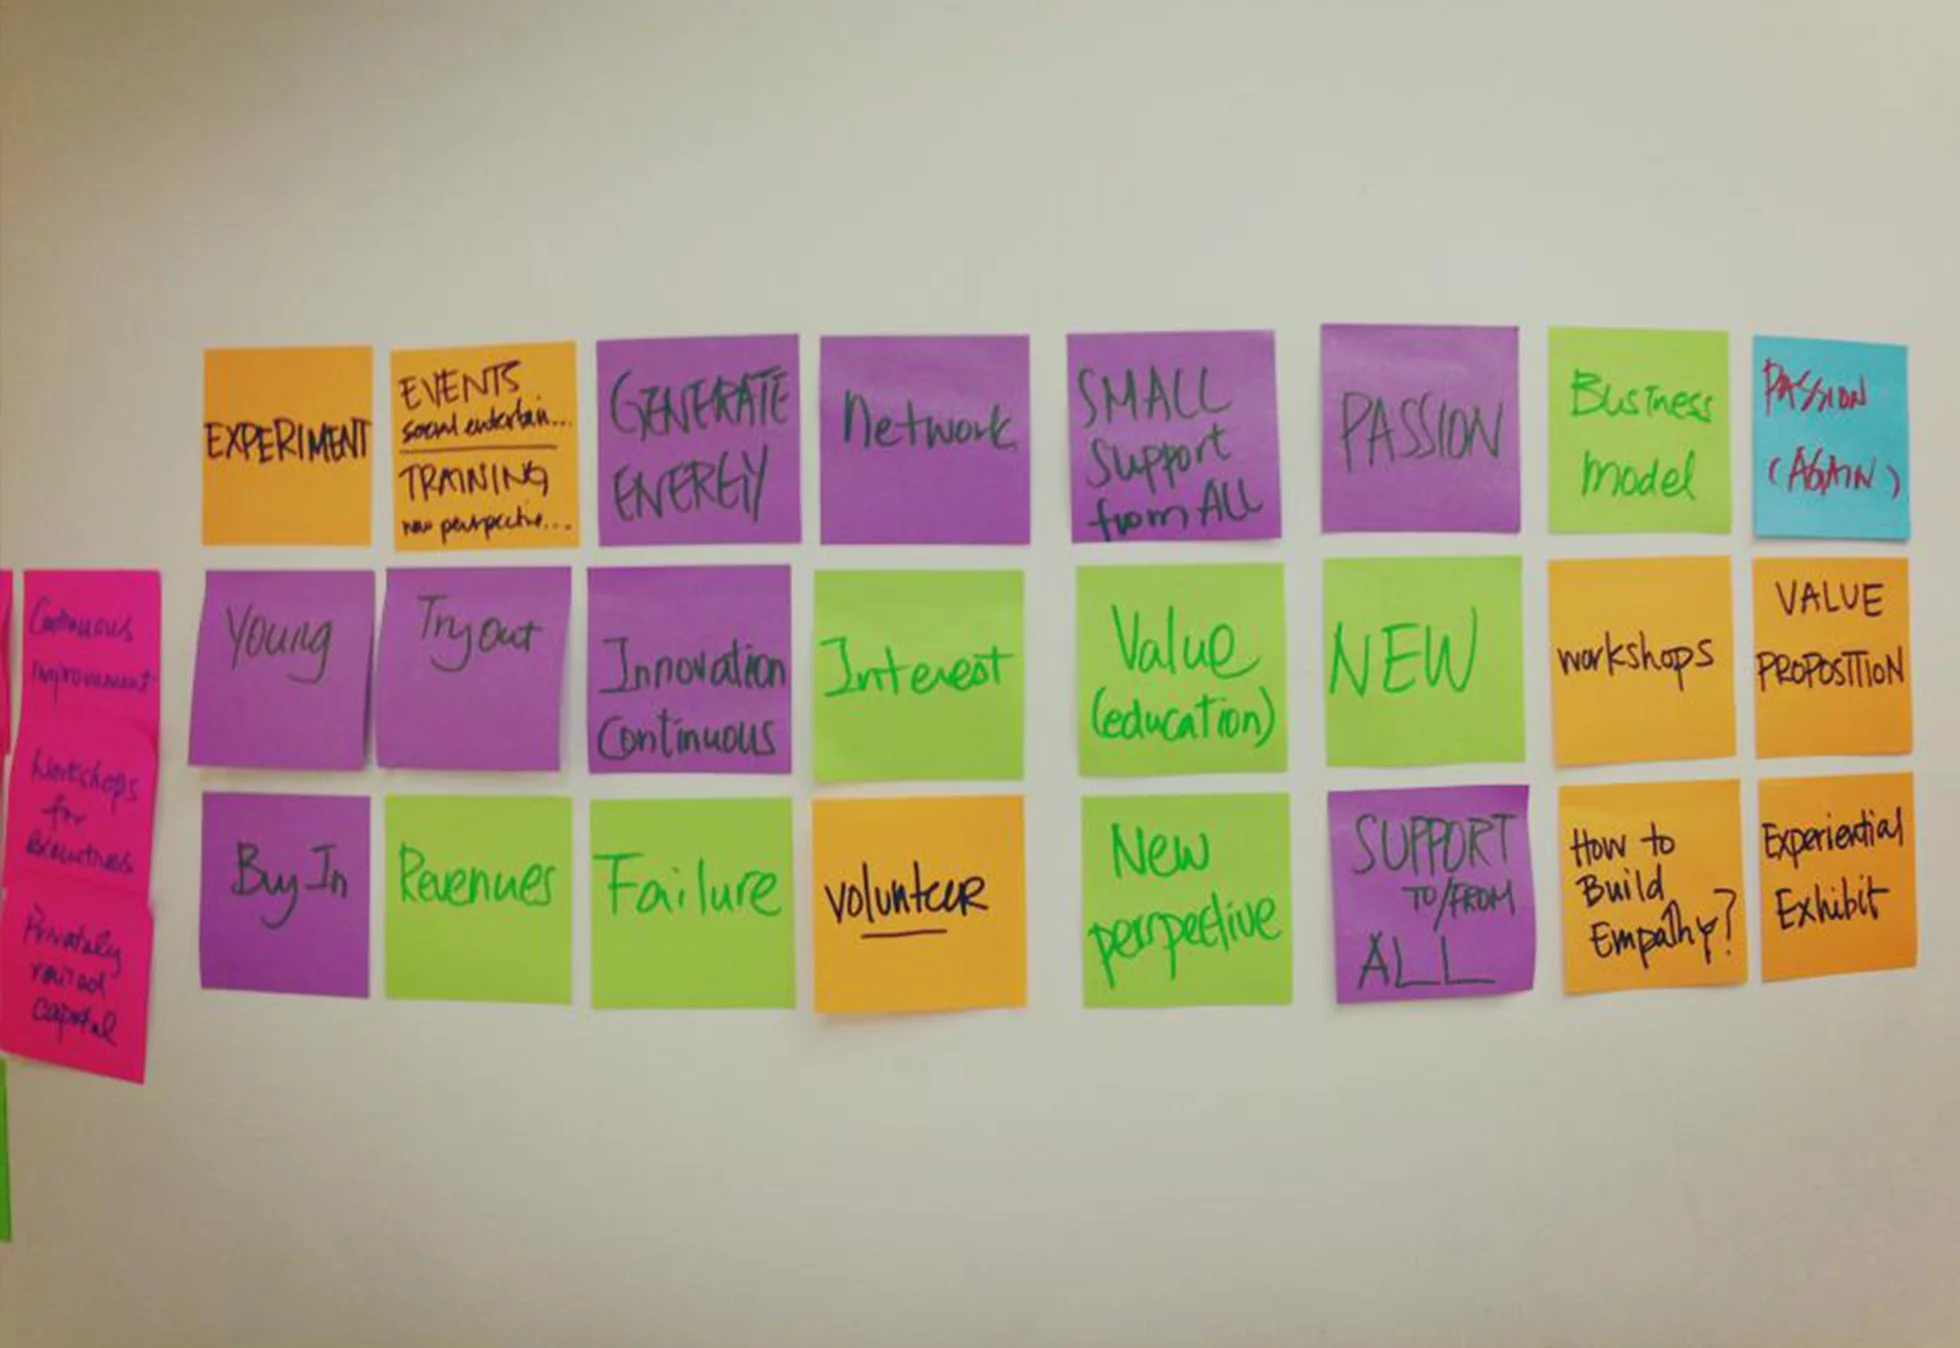 EXPERIMENT
EVENTS
social entertain...
TRAINING
new perspective...
GENERATE
ENERGY
Network
SMALL
Support
from ALL
PASSION
Business
Model
PASSION
(AGAIN)
Continuous
improvement
Young
Try out
Innovation
Continuous
Interest
Value
(education)
NEW
workshops
VALUE
PROPOSITION
Workshops
for
Executives
Buy In
Revenues
Failure
volunteer
New
perspective
SUPPORT
TO/FROM
ALL
How to
Build
Empathy?
Experiential
Exhibit
Privately
raised
capital